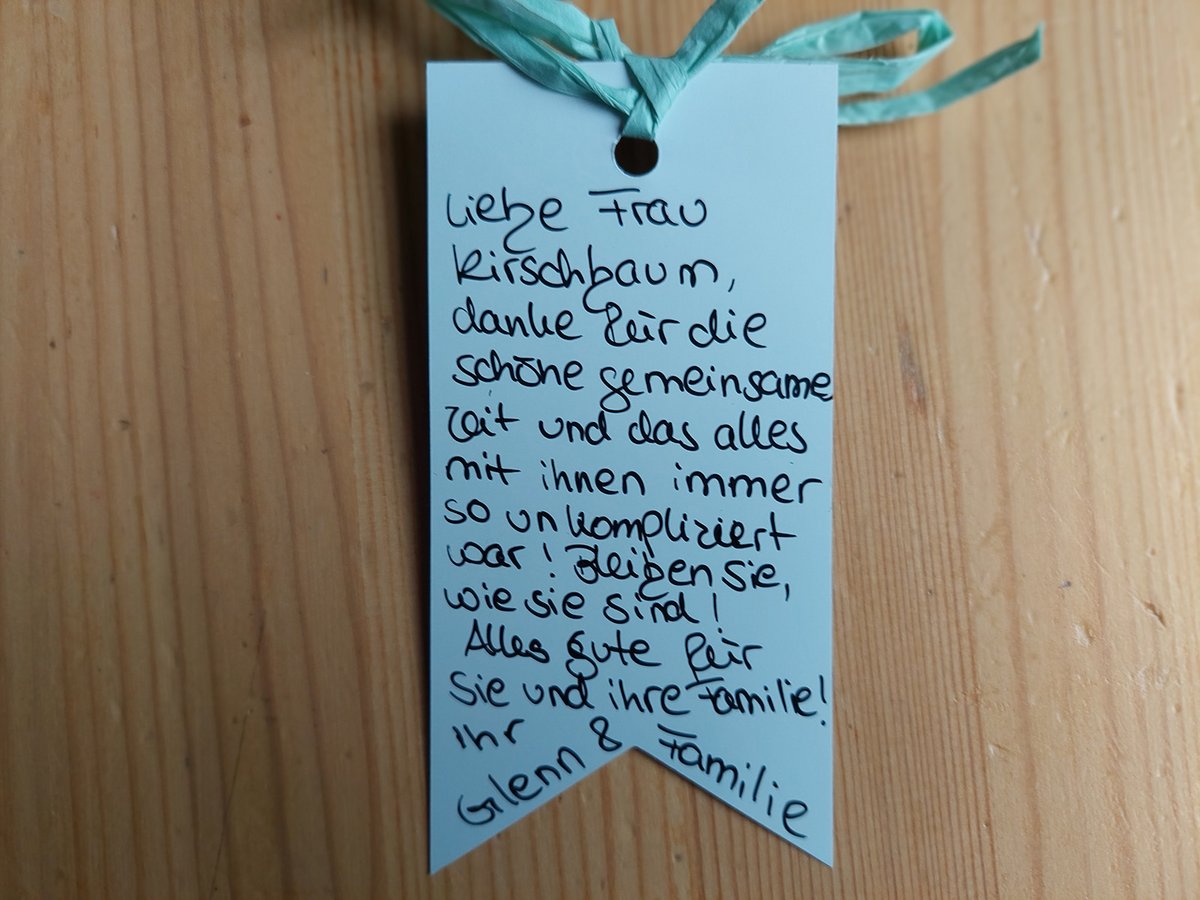 Liebe Frau
Kirschbaum,
danke für die
schöne gemeinsame
Zeit und das alles
mit ihnen immer
so unkompliziert
war! Bleiben sie,
wie sie sind!
Alles gute für
Sie und ihre Familie!
Ihr
Glenn & Familie